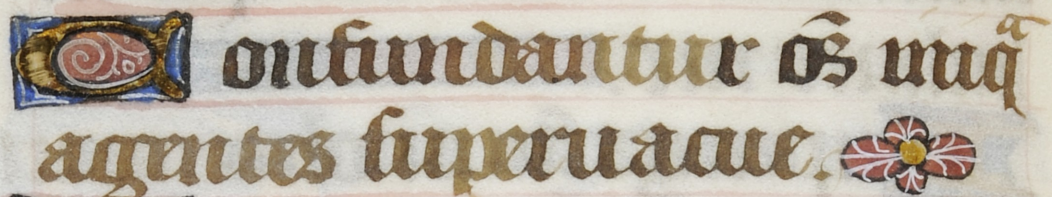 Confundantur oēs iniqᵃ
agentes superuacue.